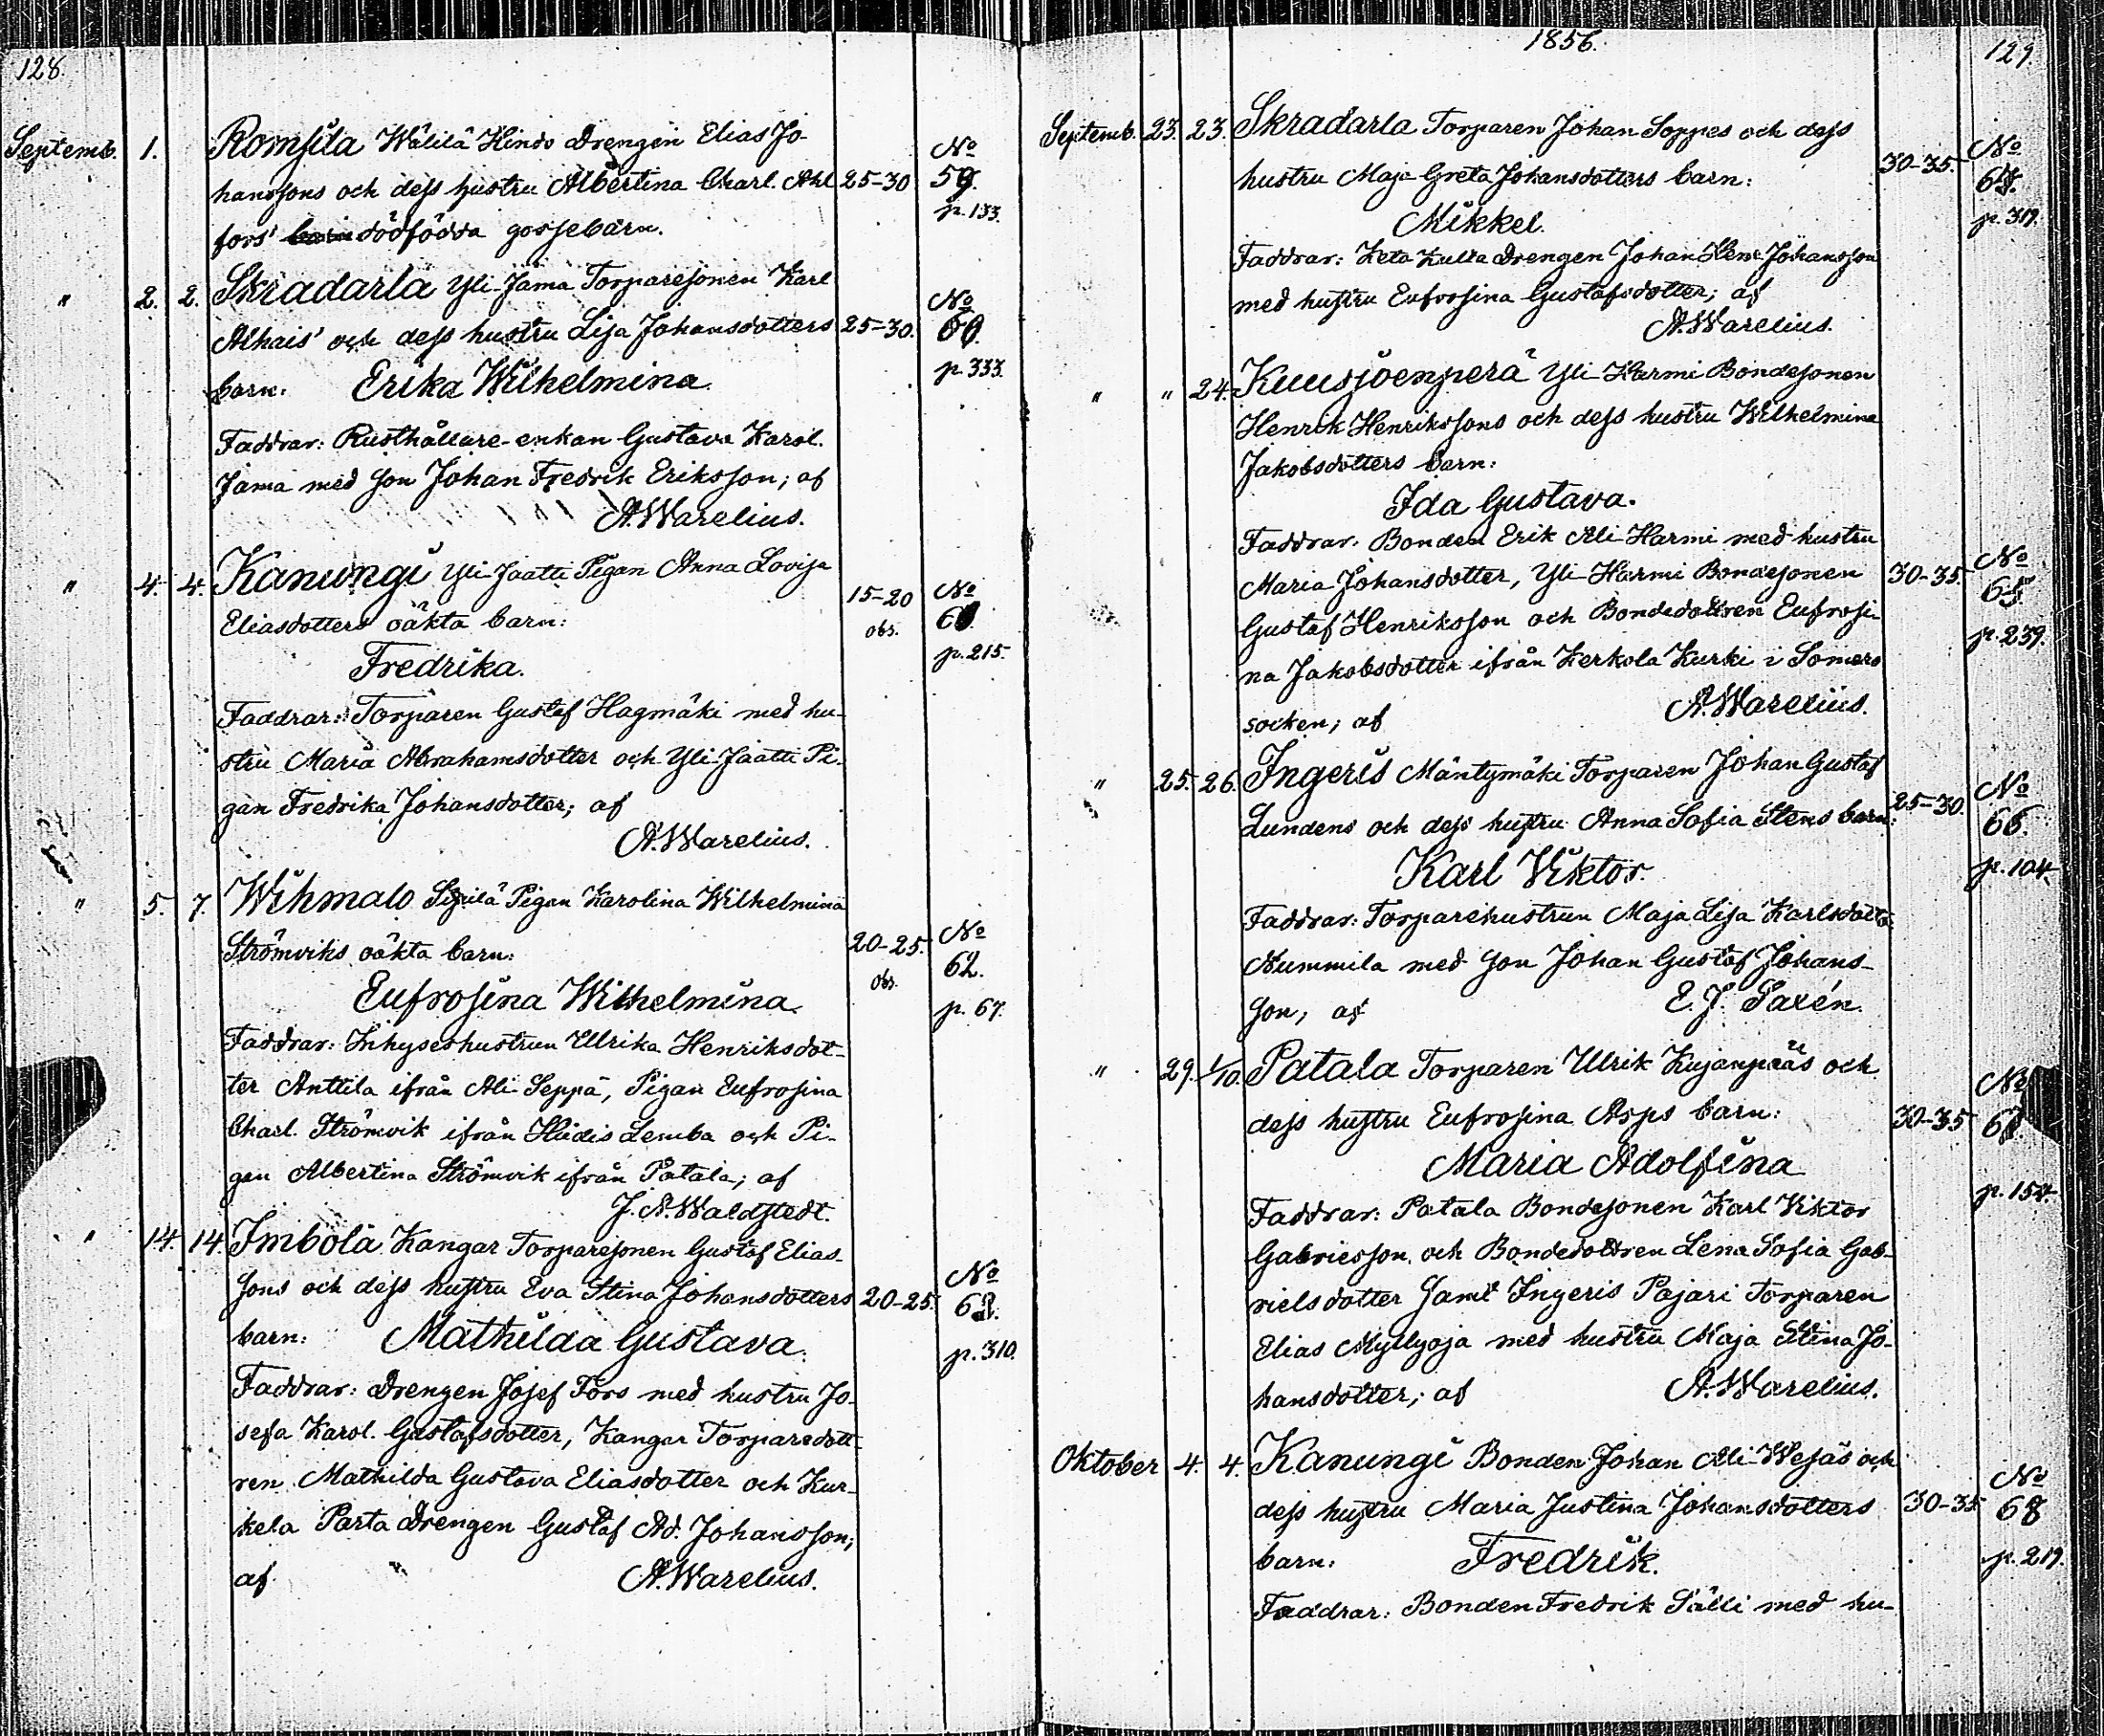 128.
Septemb. 1. Romsila Wälilä Hinds Drengen Elias Jo-
hanssons och dess hustru Albertina Charl. Ahl 25-30 No 59.
fors' dödfödda gossebarn. p. 133.
" 2. 2. Skradarla Yli-Jama Torparesonen Karl
Alhais' och dess hustru Lisa Johansdotters 25-30. No 60.
barn: Erika Wilhelmina. p. 333.
Faddrar: Rusthållare-enkan Gustava Karol.
Jama med son Johan Fredrik Eriksson; af
A. Warelius.
" 4. 4. Kanungi Yli-Jaatti Pigan Anna Lovisa
Eliasdotters oäkta barn: 15-20 obs. No 61.
Fredrika. p. 215.
Faddrar: Torparen Gustaf Hagmäki med hu-
stru Maria Abrahamsdotter och Yli-Jaatti Pi-
gan Fredrika Johansdotter; af
A. Warelius.
" 5. 7. Wihmalo Sipilä Pigan Karolina Wilhelmina
Strömviks oäkta barn: 20-25. obs. No 62.
Eufrosina Wilhelmina. p. 67.
Faddrar: Inhyseshustrun Ulrika Henriksdot-
ter Anttila ifrån Ali Seppä, Pigan Eufrosina
Charl. Strömvik ifrån Hiidis Lemba och Pi-
gan Albertina Strömvik ifrån Patala; af
J. A. Waldstedt.
" 14. 14. Imbola Kangar Torparesonen Gustaf Elias-
sons och dess hustru Eva Stina Johansdotters 20-25. No 63.
barn: Mathilda Gustava. p. 310.
Faddrar: Drengen Josef Fors med hustru Jo-
sefa Karol. Gustafsdotter, Kangar Torparedott-
ren Mathilda Gustava Eliasdotter och Kur-
kela Parta Drengen Gustaf Ad. Johansson;
af A. Warelius.
1856. 129.
Septemb. 23. 23. Skradarla Torparen Johan Soppes och dess
hustru Maja Greta Johansdotters barn: 30-35. No 64.
Mikkel. p. 317.
Faddrar: Keta Kulla Drengen Johan Johansson
med hustru Eufrosina Gustafsdotter; af
A. Warelius.
" " 24. Kuusjoenperä Yli-Harmi Bondesonen
Henrik Henrikssons och dess hustru Wilhelmina
Jakobsdotters barn:
Ida Gustava.
Faddrar: Bonden Erik Ali-Harmi med hustru
Maria Johansdotter, Yli-Harmi Bondesonen 30-35. No 65.
Gustaf Henriksson och Bondedottren Eufrosi-
na Jakobsdotter ifrån Kerkola Kurki i Somero p. 239.
socken; af A. Warelius.
" 25. 26. Ingeris Mäntymäki Torparen Johan Gustaf
Lundens och dess hustru Anna Sofia Stens barn: 25-30. No 66.
Karl Viktor. p. 104.
Faddrar: Torparehustrun Maja Lisa Karlsdotter
Nummila med son Johan Gustaf Johans-
son; af E. J. Saxén.
" 29. 1/10. Patala Torparen Ulrik Kujanpääs och
dess hustru Eufrosina Asps barn: 30-35 No 67.
Maria Adolfina
Faddrar: Patala Bondesonen Karl Viktor p. 154.
Gabrielsson och Bondedottren Lena Sofia Gab-
rielsdotter samt Ingeris Pajari Torparen
Elias Myllyoja med hustru Maja Stina Jo-
hansdotter; af A. Warelius.
Oktober 4. 4. Kanungi Bonden Johan Ali-Wesäs och
dess hustru Maria Justina Johansdotters 30-35 No 68
barn: Fredrik. p. 219.
Faddrar: Bonden Fredrik Sälli med hu-